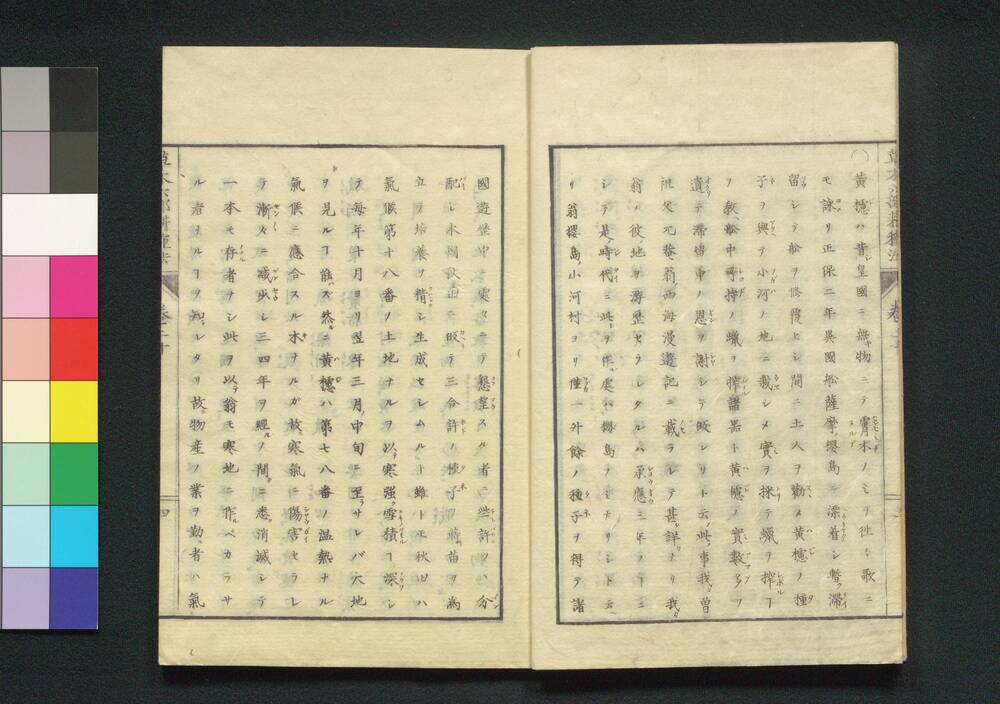 〇黄櫨ハ昔シ皇國ニ無キ物ニテ膚木ノミヲ往〻歌ニ
モ詠リ正保二年異國舩薩摩櫻島ニ漂着シ暫滞
留シテ舩ヲ修覆セシ間ニ土人ヲ勧メ黄櫨ノ種
子ヲ與テ小河ノ地ニ栽シメ實ヲ採テ蠟ヲ搾ㇽヿ
ヲ教舩中所持ノ蠟ヲ搾諸器ト黄櫨ノ實數多ヲ
遺テ滞留中ノ恩ヲ謝シテ皈レリト云此事我曽
祖父元菴翁西海漫遊記ニ載ラレテ甚詳ナリ我
翁ノ彼地ヲ遊歴セラレタルハ承應三年ノヿニ
シテ是時代ニ此ヲ作處ハ櫻島ノミナリシト云
リ翁櫻島小河村ヨリ陸一外餘ノ種子ヲ得テ諸
國遊歴中 寒久ニテ懇望スル者ニ些許ツハ分
配シ本國秋田ニ皈テ三合許ノ種子ヲ蒔苗ヲ為
立テ培養ヲ精シ生成セシムルト雖ト羽秋田ハ
氣候第十八番ノ土地ナルヲ以寒强雪積ヿ深シ
テ毎年十月ヨリ翌年三月中旬ニ至サレバ大地
ヲ見ルヿ能ハズ然ニ黄櫨ハ第七八番ノ温熱ナル
氣候ニ應合スル木ナルガ故寒氣ニ傷害セラレ
テ漸々ニ減少シ三四年ヲ經ルノ間ニ悉消滅シテ
一本モ存者ナシ此ヲ以翁モ寒地ニ作ルベカラサ
ル者ナルヿヲ知レタリ故物産ノ業ヲ勤者ハ氣